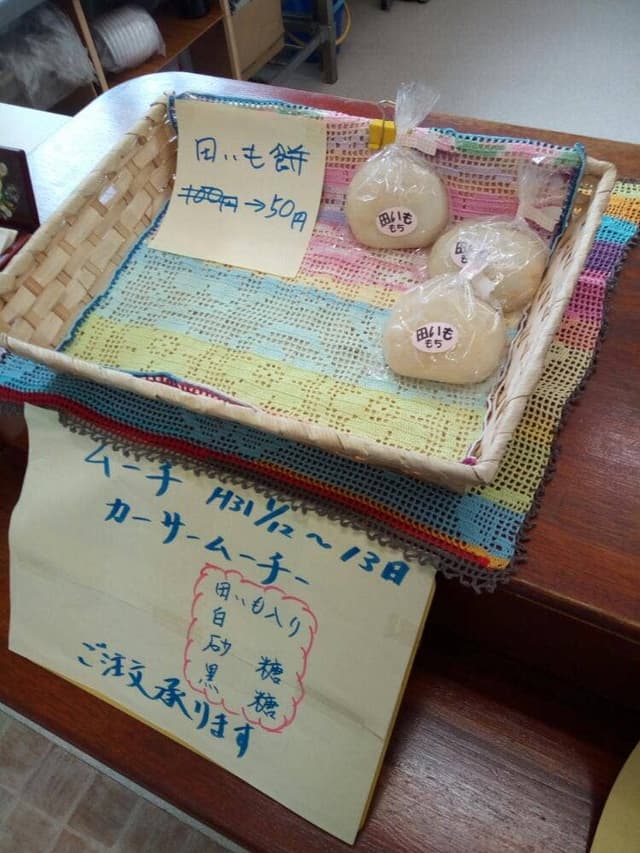 田いも餅
100円→50円
田いも
もち
田いも
もち
田いも
もち
ムーチー
1/12～13日
カーサームーチー
田いも入り
白砂糖
黒糖
ご注文承ります